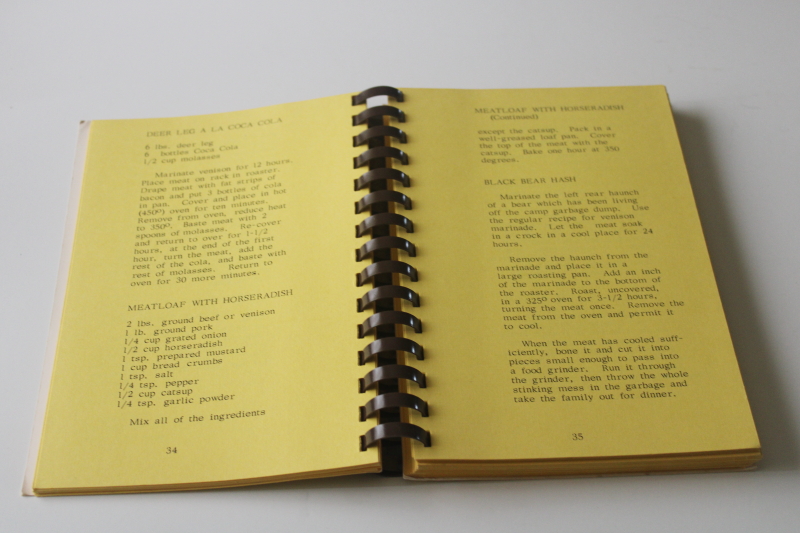 DEER LEG A LA COCA COLA
6 lbs. deer leg
6 bottles Coca Cola
1/2 cup molasses
Marinate venison for 12 hours.
Place meat on rack in roaster.
Drape meat with fat strips of
bacon and put 3 bottles of cola
in pan. Cover and place in hot
(450°) oven for ten minutes.
Remove from oven, reduce heat
to 350°. Baste meat with 2
spoons of molasses. Re-cover
and return to over for 1-1/2
hours, at the end of the first
hour, turn the meat, add the
rest of the cola, and baste with
rest of molasses. Return to
oven for 30 more minutes.
MEATLOAF WITH HORSERADISH
2 lbs. ground beef or venison
1 lb. ground pork
1/4 cup grated onion
1/2 cup horseradish
1 tsp. prepared mustard
1 cup bread crumbs
1 tsp. salt
1/4 tsp. pepper
1/2 cup catsup
1/4 tsp. garlic powder
Mix all of the ingredients
34
MEATLOAF WITH HORSERADISH
(Continued)
except the catsup. Pack in a
well-greased loaf pan. Cover
the top of the meat with the
catsup. Bake one hour at 350
degrees.
BLACK BEAR HASH
Marinate the left rear haunch
of a bear which has been living
off the camp garbage dump. Use
the regular recipe for venison
marinade. Let the meat soak
in a crock in a cool place for 24
hours.
Remove the haunch from the
marinade and place it in a
large roasting pan. Add an inch
of the marinade to the bottom of
the roaster. Roast, uncovered,
in a 325° oven for 3-1/2 hours,
turning the meat once. Remove the
meat from the oven and permit it
to cool.
When the meat has cooled suff-
iciently, bone it and cut it into
pieces small enough to pass into
a food grinder. Run it through
the grinder, then throw the whole
stinking mess in the garbage and
take the family out for dinner.
35